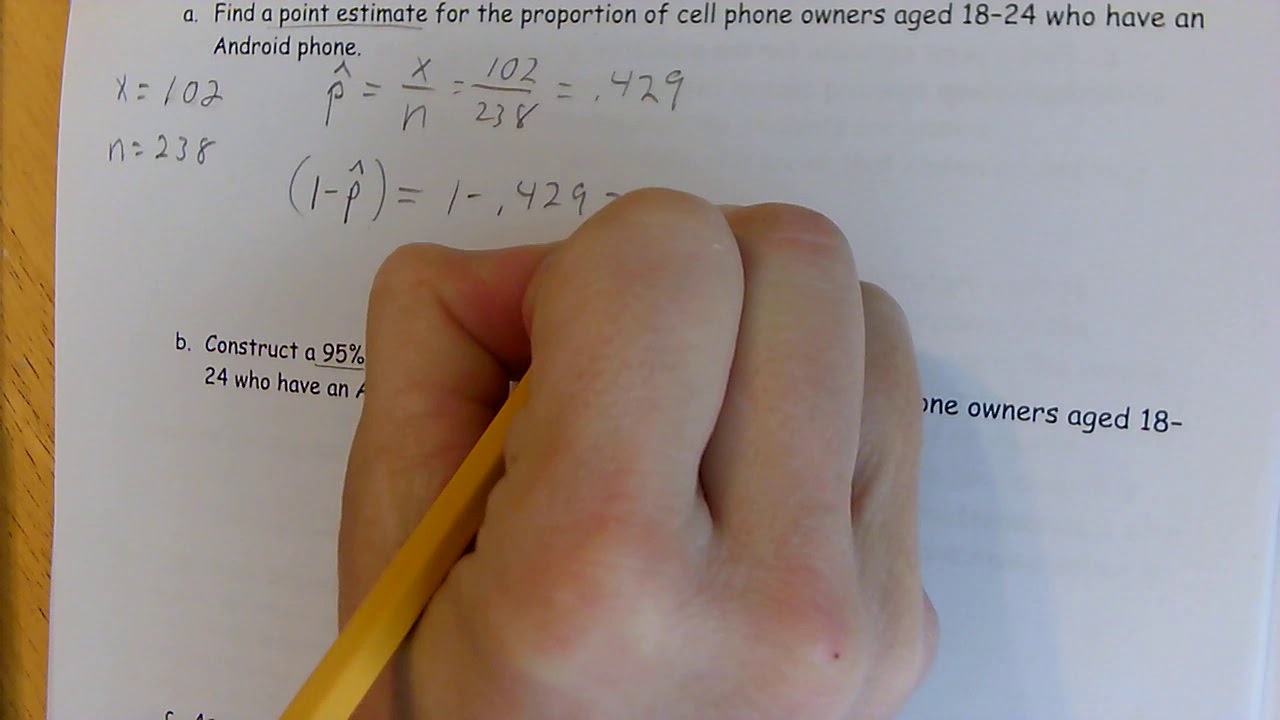 a. Find a point estimate for the proportion of cell phone owners aged 18-24 who have an
Android phone.
x = 102
p̂ = x/n = 102/238 = .429
n = 238
(1-p̂) = 1-.429 =
b. Construct a 95%
24 who have an
owners aged 18-